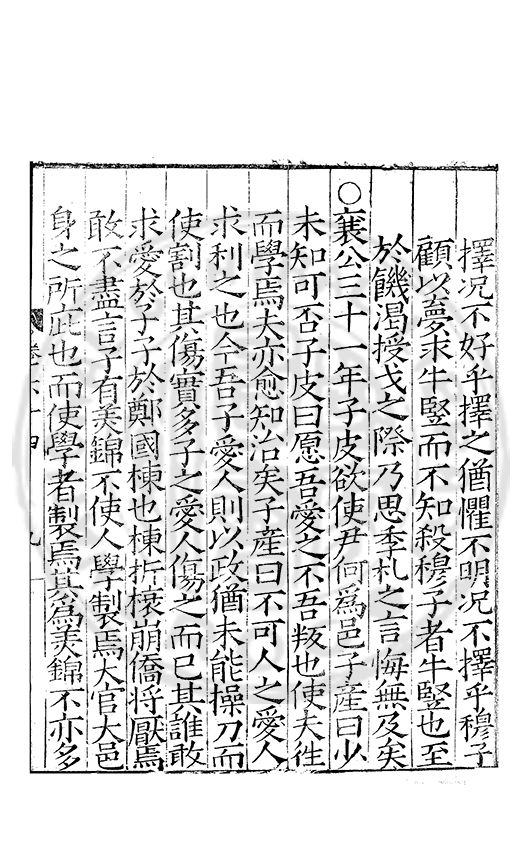 擇况不好乎擇之猶懼不明况不擇乎穆子
顧以夢求牛豎而不知殺穆子者牛豎也至
於饑渴授戈之際乃思季札之言悔無及矣
○襄公三十一年子皮欲使尹何爲邑子產曰少
未知可否子皮曰愿吾愛之不吾叛也使夫徃
而學焉夫亦愈知治矣子產曰不可人之愛人
求利之也今吾子愛人則以政猶未能操刀而
使割也其傷實多子之愛人傷之而已其誰敢
求愛於子子於鄭國棟也棟折榱崩僑將厭焉
敢不盡言子有美錦不使人學製焉大官大邑
身之所庇也而使學者製焉其爲美錦不亦多
卷六十四
九